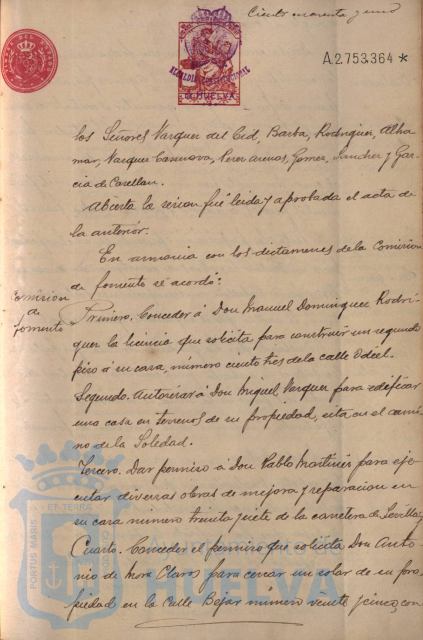 Ciento noventa y uno
A.2.753.364 *
ALCALDIA CONSTITUCIONAL
HUELVA
los Señores Vazquez del Cid, Barba, Rodriguez, Alha
mar, Vazquez Casanova, Perez Arenas, Gomez, Sanchez y Gar
cia de Casellan.
Abierta la sesion fué leida y aprobada el acta de
la anterior.
En armonia con los dictamenes de la Comision
de fomento se acordó:
Comision
de
fomento
Primero. Conceder á Don Manuel Dominguez Rodri
guez la licencia que solicita para construir un segundo
piso á su casa, número ciento tres de la calle Odiel.
Segundo. Autorizar á Don Miguel Vazquez para edificar
una casa en terrenos de su propiedad, sita en el cami
no de la Soledad.
Tercero. Dar permiso á Don Pablo Martinez para eje
cutar diversas obras de mejora y reparacion en
su casa número treinta y siete de la carretera de Sevilla y
Cuarto. Conceder el permiso que solicita Don Anto
nio de Mora Claros para cercar un solar de su pro
piedad en la Calle Bejar número veinte y cinco, con
PORTUS MARIS ET TERRÆ CUSTODIA
Ayuntamiento de
HUELVA